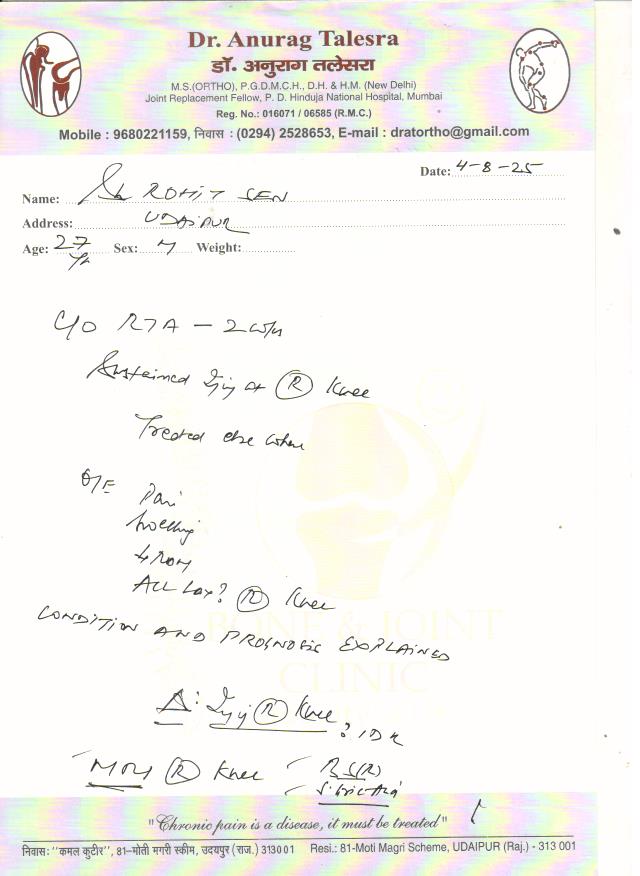 Dr. Anurag Talesra
डॉ. अनुराग तलेसरा
M.S.(ORTHO), P.G.D.M.C.H., D.H. & H.M. (New Delhi)
Joint Replacement Fellow, P. D. Hinduja National Hospital, Mumbai
Reg. No.: 016071 / 06585 (R.M.C.)
Mobile : 9680221159, निवास : (0294) 2528653, E-mail : dratortho@gmail.com
Date: 4-8-25
Name: Sh ROHIT SEN
Address: UDAIPUR
Age: 27 Yr Sex: M Weight:
C/O RTA - 2 
Sustained Injy at (R) Knee
Treated else where
O/E Pain
Swelling
↓ROM
ACL Lax? (R) Knee
CONDITION AND PROGNOSIS EXPLAINED
Δ: Injy (R) Knee ? IDK
MRI (R) Knee
BONE & JOINT
CLINIC
"Chronic pain is a disease, it must be treated"
निवास: "कमल कुटीर", 81-मोती मगरी स्कीम, उदयपुर (राज.) 313001 Resi.: 81-Moti Magri Scheme, UDAIPUR (Raj.) - 313 001